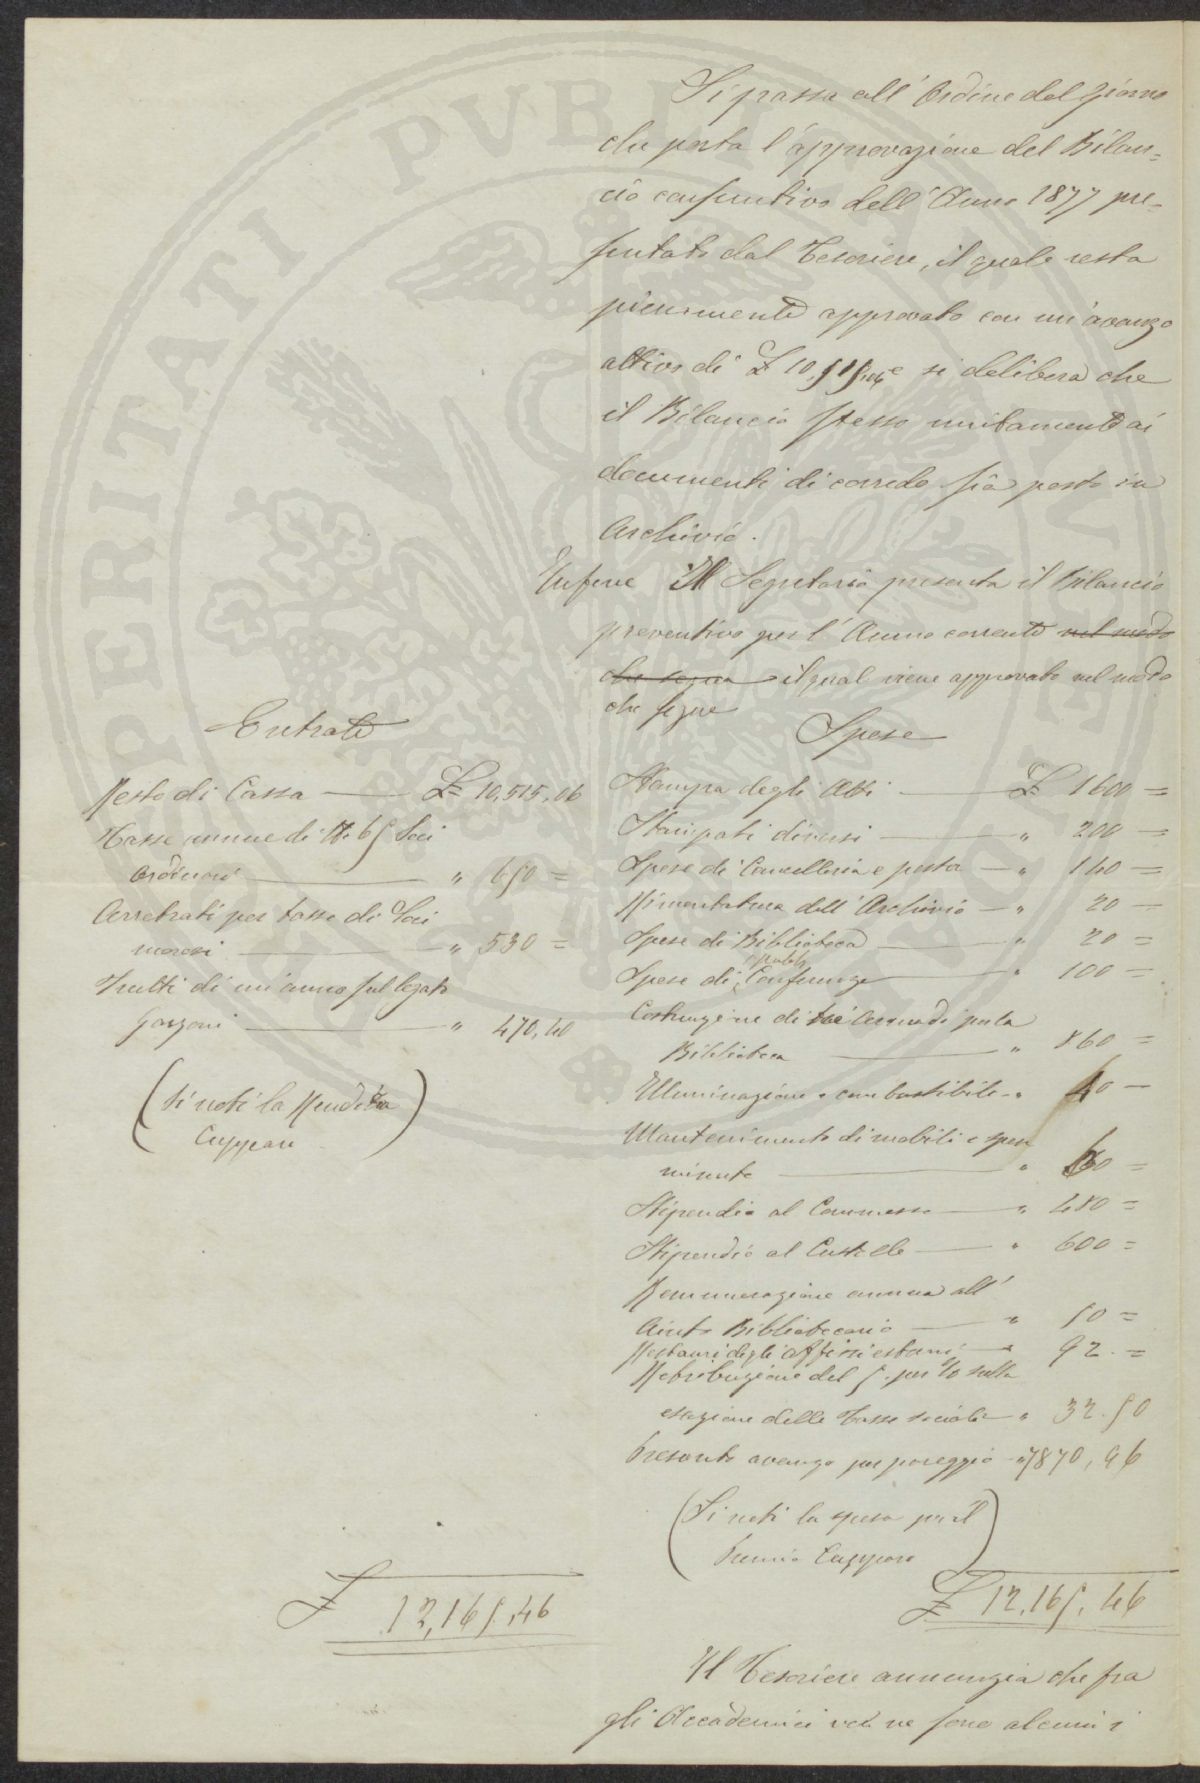 Si passa all'Ordine del giorno
che porta l'approvazione del Bilan=
cio consuntivo dell'Anno 1877 pre=
sentato dal Tesoriere, il quale resta
pienamente approvato con un'avanzo
attivo di £ 10,515,06 e si delibera che
il Bilancio stesso unitamente ai
documenti di corredo sia posto in
Archivio.
Infine Il Segretario presenta il Bilancio
preventivo per l'Anno corrente nel modo
che segue il qual viene approvato nel modo
che segue
Entrate
Resto di Cassa — £ 10,515,06
Tasse annue di N. 65 Soci
Ordinari — " 650 =
Arretrati per tasse di Soci
morosi — " 530 =
Frutti di un'anno sul legato
Gazzani — " 470,40
(Si noti la Rendita
Cuppari)
£ 12,165,46
Spese
Stampa degli Atti — £ 1600 =
Stampati diversi — " 200 =
Spese di Cancelleria e posta — " 140 =
Rimontatura dell'Archivio — " 20 =
Spese di Biblioteca — " 20 =
Spese di pubb. Conferenze — " 100 =
Costruzione di tre Armadi per la
Biblioteca — " 860 =
Illuminazione e combustibile — " 40 =
Mantenimento di mobili e spese
minute — " 60 =
Stipendio al Commesso — " 480 =
Stipendio al Custode — " 600 =
Remunerazione annua all'
Aiuto Bibliotecario — " 50 =
Restauri degli affissi esterni — " 92 =
Retribuzione del 5 per % sulla
esazione delle tasse sociali — " 32.50
Presunto avanzo per pareggio — " 7870,96
(Si noti la spesa per il
Premio Cuppari)
£ 12,165,46
Il Tesoriere annunzia che fra
gli Accademici ve ne sono alcuni i